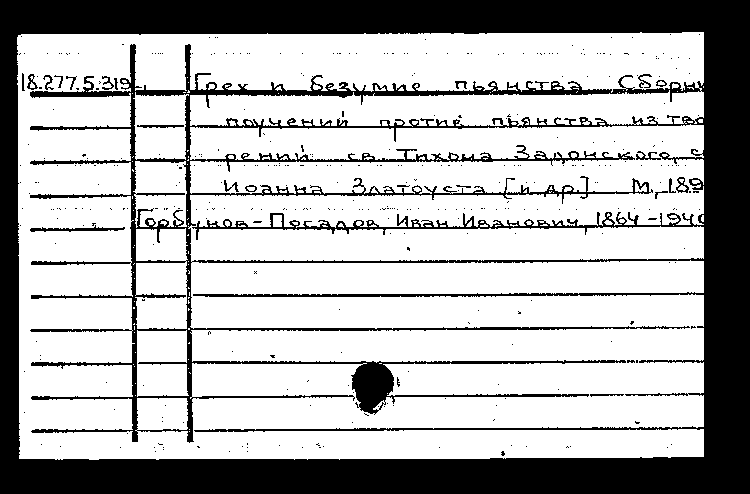 18.277.5.319 Грех и безумие пьянства Сборни
поучений против пьянства из тво
рений св. Тихона Задонского, с
Иоанна Златоуста [и др.] М., 189
Горбунов-Посадов, Иван Иванович, 1864-1940